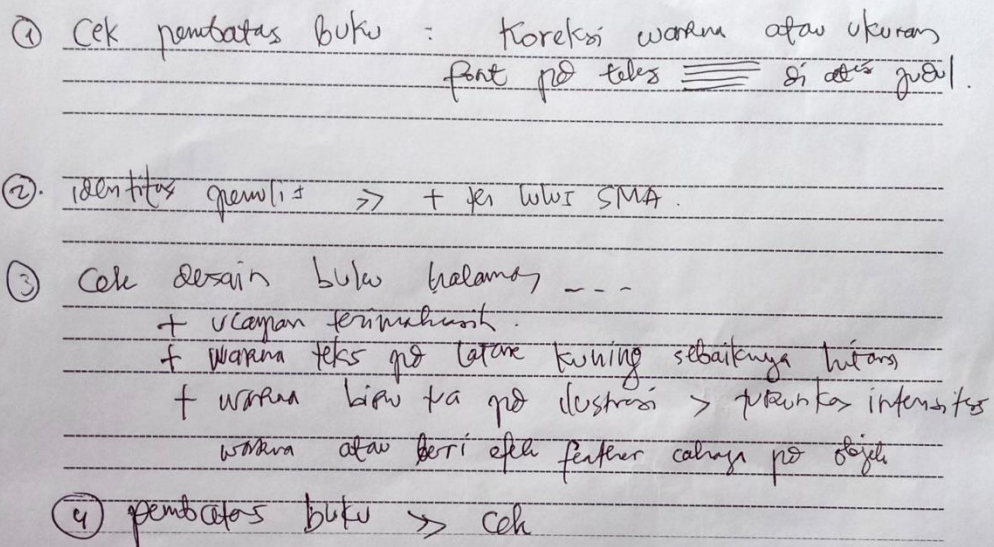 ① Cek pembatas buku : Koreksi warna atau ukuran
font pd teks di atas judul.
②. identitas penulis >> + lulus SMA.
③ Cek desain buku halaman ---
+ ucapan terimakasih.
+ warna teks pd latar kuning sebaiknya hitam
+ warna biru tua pd ilustrasi > turunkan intensitas
warna atau beri efek feather cahaya pd objek
④ pembatas buku >> cek